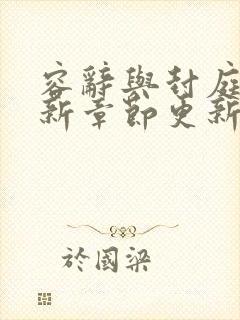 容辭與封庭
新章節更新
於國梁